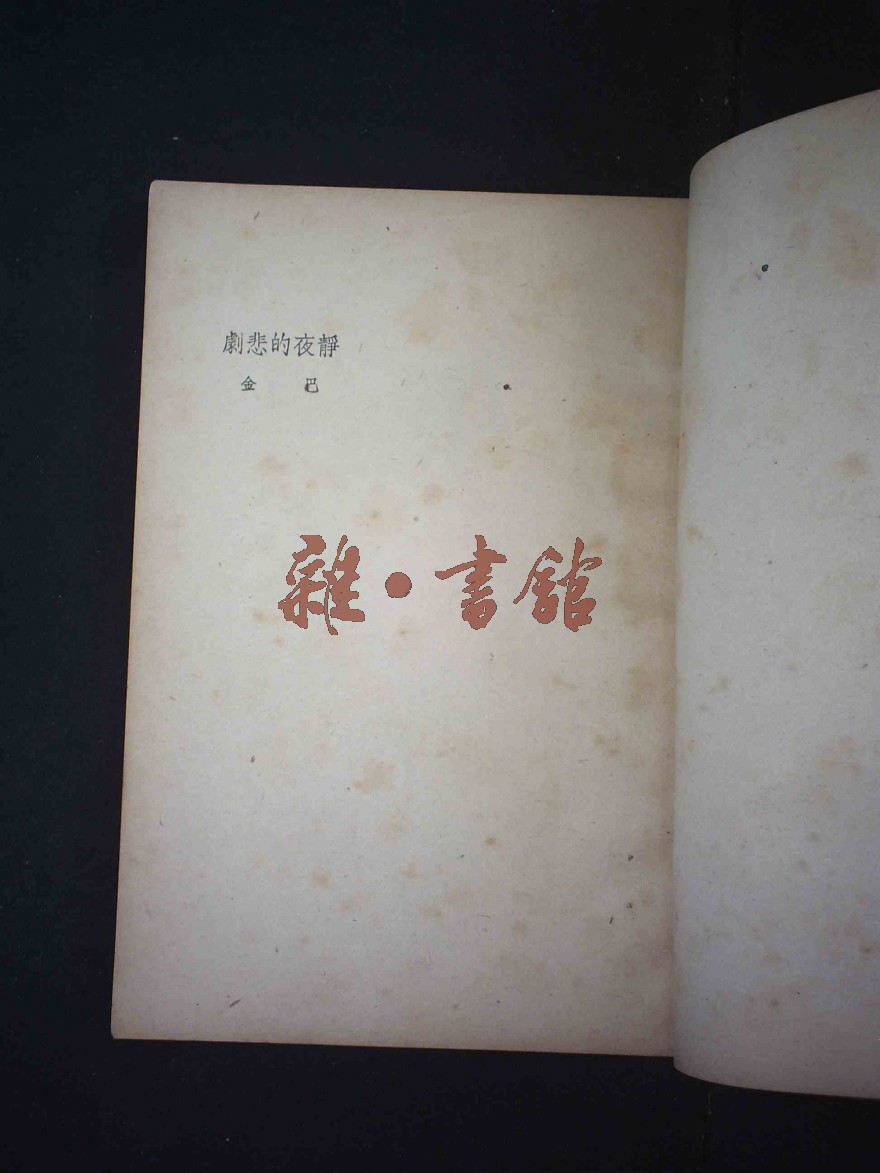 靜夜的悲劇
巴金
雜·書館